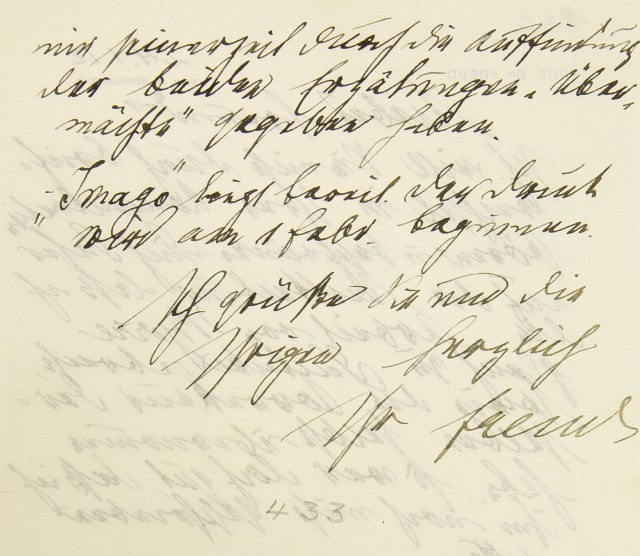 mir seinerzeit durch die Auffindung
der beiden Erzählungen „Über-
mächte“ gegeben haben.
„Imago“ liegt bereit. Der Druck
wird am 1 Febr. beginnen.
Ich grüße Sie und die
Ihrigen herzlich
Ihr Freud
433